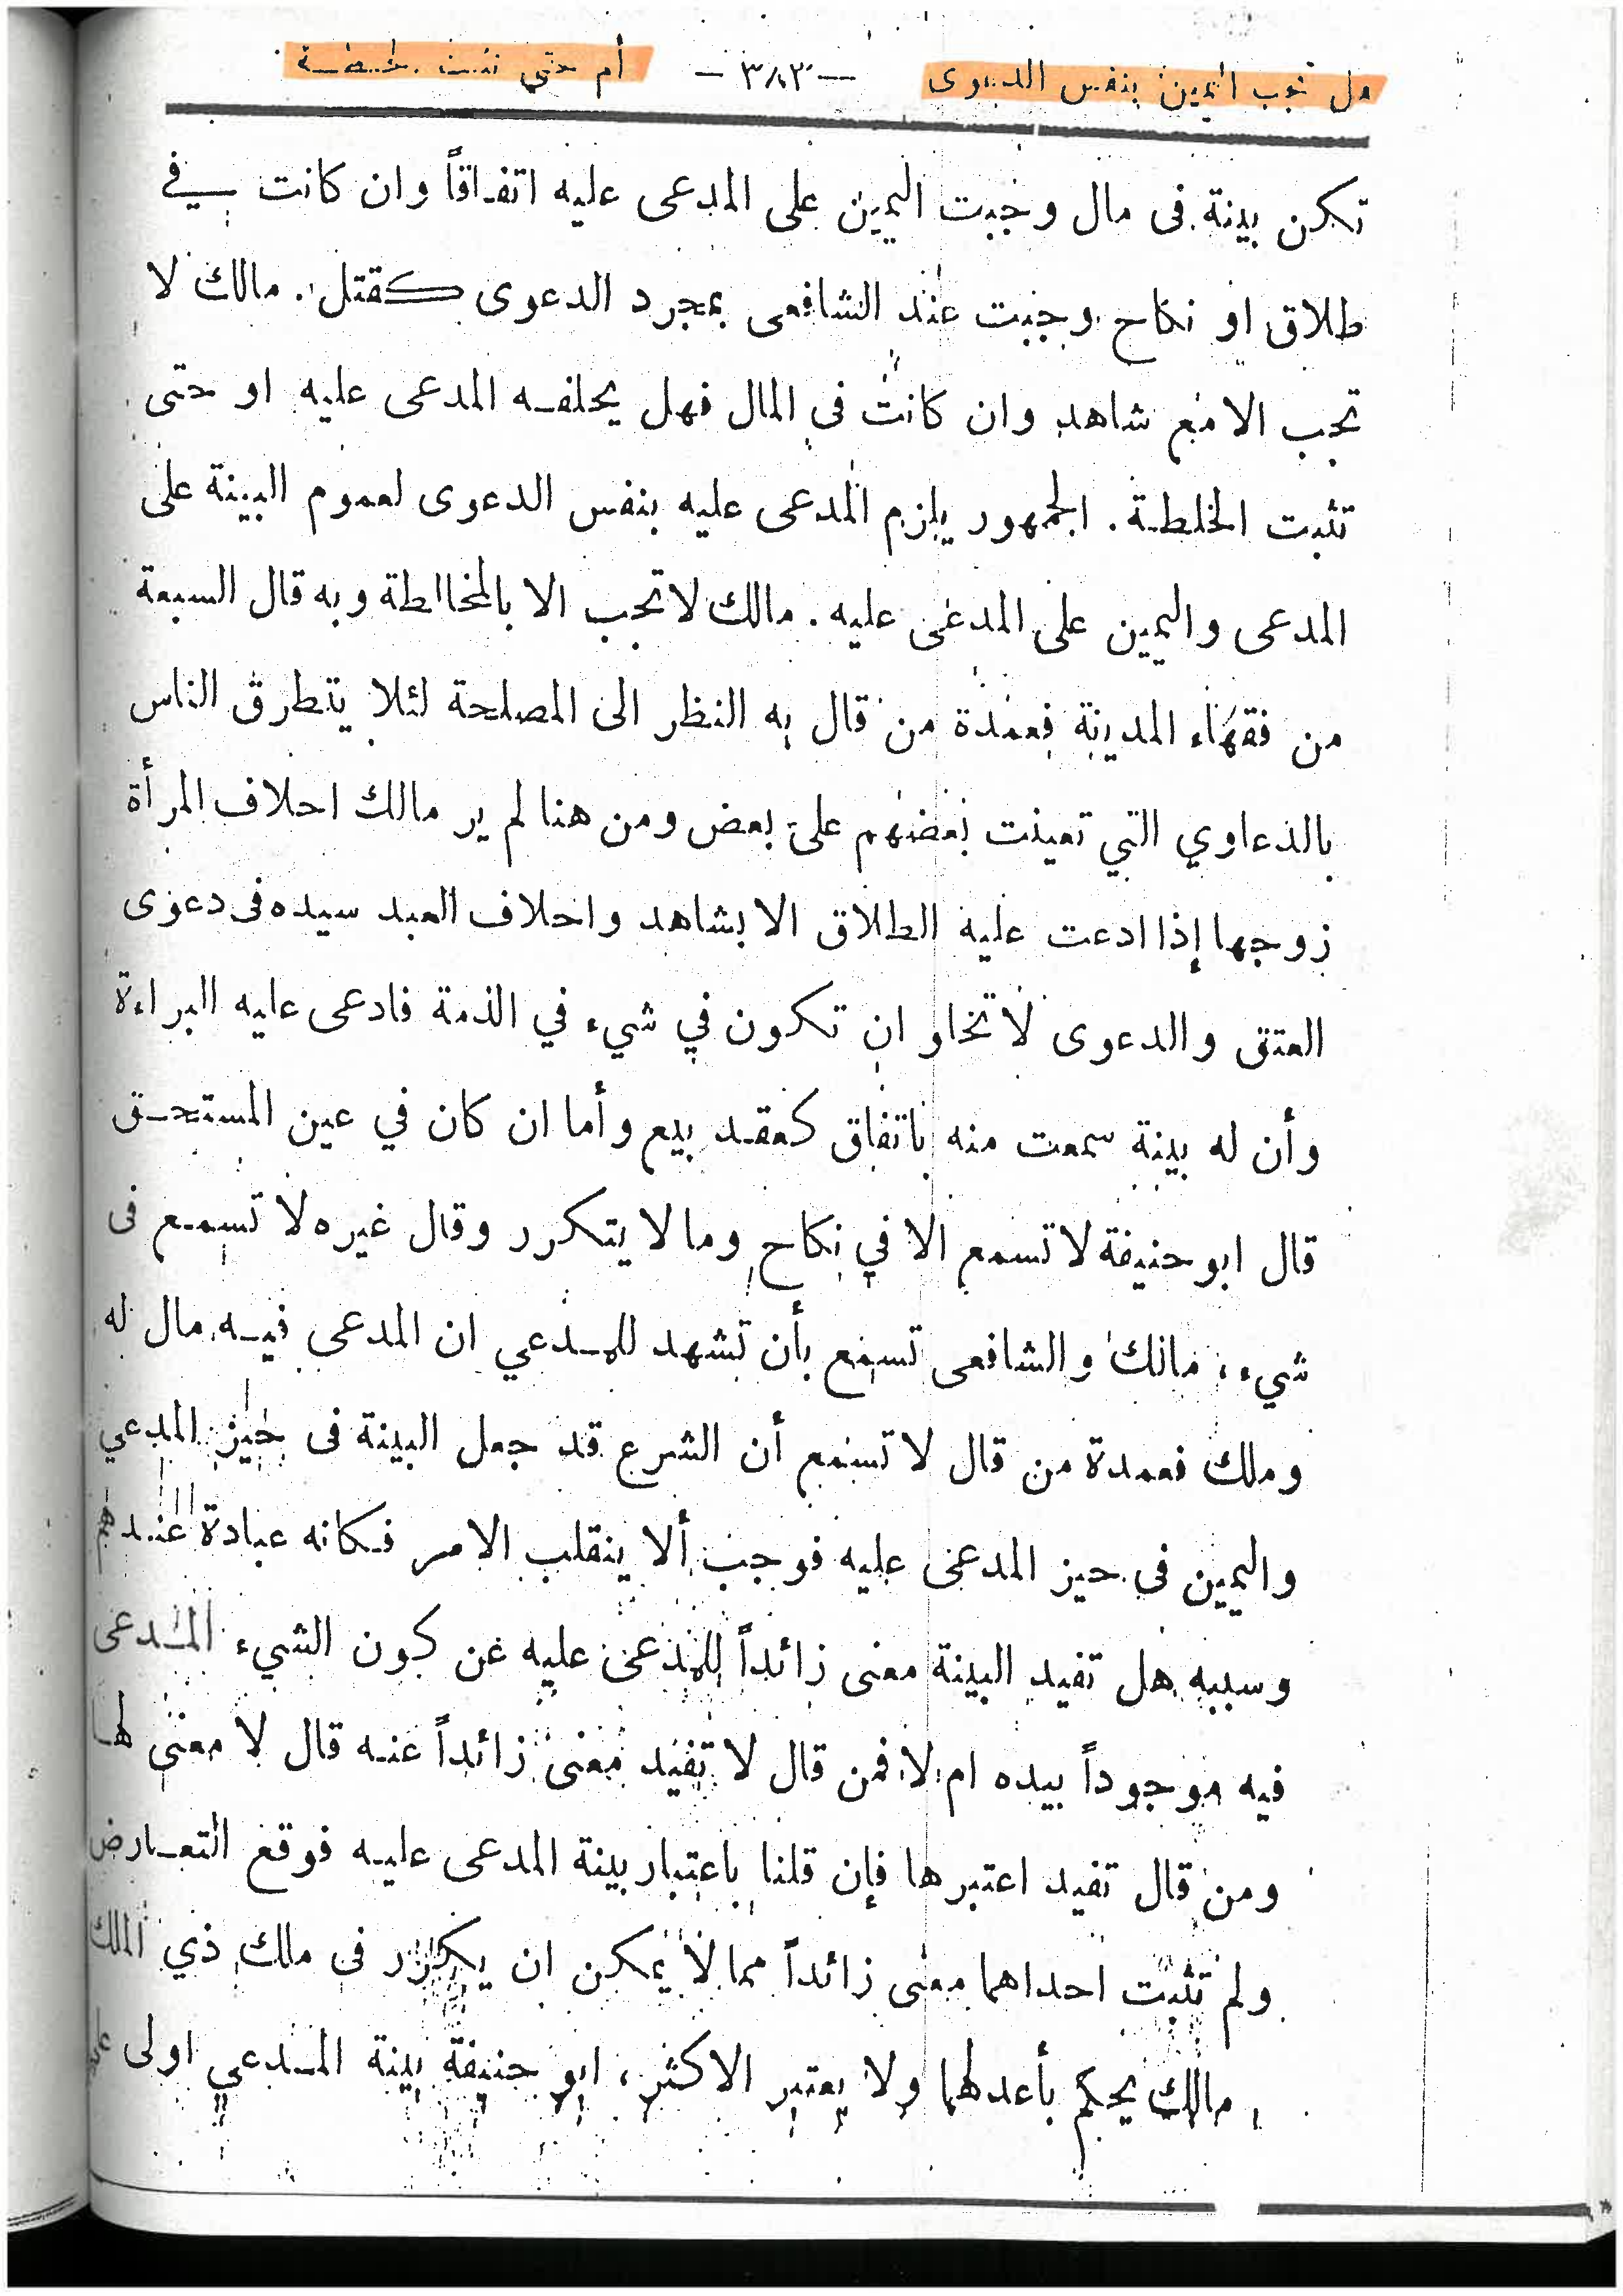 هل تجب اليمين بنفس الدعوى — ٣٨٣ — أم حتى تثبت خلطة
تكن بينة فى مال وجبت اليمين على المدعى عليه اتفاقاً وان كانت في
طلاق او نكاح وجبت عند الشافعى بمجرد الدعوى كقتل. مالك لا
تجب الا مع شاهد وان كانت في المال فهل يحلفه المدعى عليه او حتى
تثبت الخلطة. الجمهور يلزم المدعى عليه بنفس الدعوى لعموم البينة على
المدعى واليمين على المدعى عليه. مالك لا تجب الا بالمخالطة وبه قال السبعة
من فقهاء المدينة فعمدة من قال به النظر الى المصلحة لئلا يتطرق الناس
بالدعاوي التي تعينت بعضهم على بعض ومن هنا لم ير مالك احلاف المرأة
زوجها إذا ادعت عليه الطلاق الا بشاهد واحلاف العبد سيده فى دعوى
العتق والدعوى لا تخلو ان تكون في شيء في الذمة فادعى عليه البراءة
وأن له بينة سمعت منه باتفاق كعقد بيع وأما ان كان في عين المستحق
قال ابو حنيفة لا تسمع الا في نكاح وما لا يتكرر وقال غيره لا تسمع فى
شيء، مالك والشافعى تسمع بأن تشهد للمدعي ان المدعى فيه مال له
وملك فعمدة من قال لا تسمع أن الشرع قد جعل البينة فى حيز المدعي
واليمين فى حيز المدعى عليه فوجب ألا ينقلب الامر فكانه عبادة عندهم
وسببه هل تفيد البينة معنى زائداً للمدعى عليه عن كون الشيء المدعى
فيه موجوداً بيده ام لا فمن قال لا تفيد معنى زائداً عنه قال لا معنى لها
ومن قال تفيد اعتبرها فإن قلنا باعتبار بينة المدعى عليه فوقع التعارض
ولم تثبت احداهما معنى زائداً مما لا يمكن ان يكرر فى ملك ذي الملك
مالك يحكم بأعدلهما ولا يعتبر الاكثر، ابو حنيفة بينة المدعي اولى